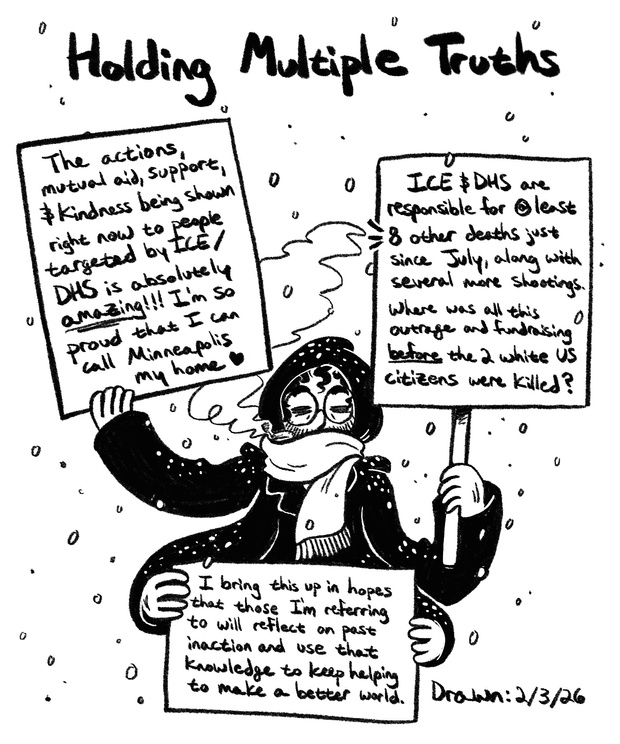 Holding Multiple Truths
The actions,
mutual aid, support,
& Kindness being shown
right now to people
targeted by ICE/
DHS is absolutely
amazing!!! I'm so
proud that I can
call Minneapolis
my home ♥
ICE & DHS are
responsible for @ least
8 other deaths just
since July, along with
several more shootings.
Where was all this
outrage and fundraising
before the 2 white US
citizens were killed?
I bring this up in hopes
that those I'm referring
to will reflect on past
inaction and use that
knowledge to keep helping
to make a better world.
Drawn: 2/3/26